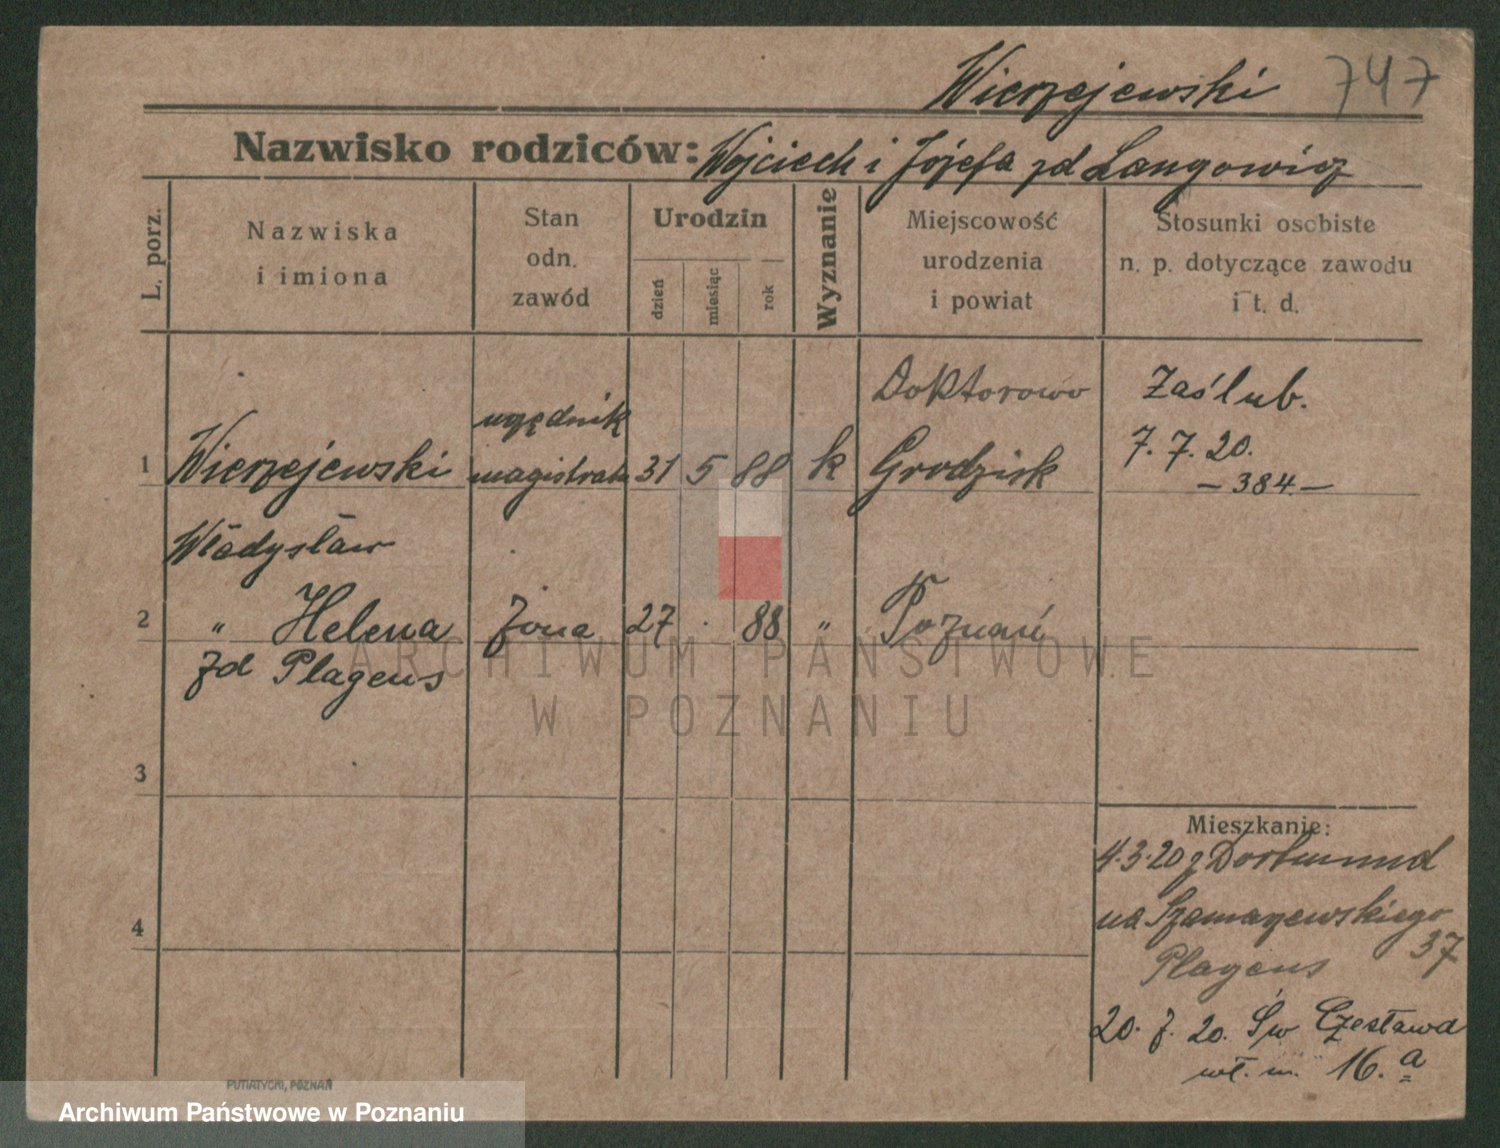 Wierzejewski 747
Nazwisko rodziców: Wojciech i Józefa zd Langowicz
L. porz.
Nazwiska
i imiona
Stan
odn.
zawód
Urodzin
dzień
miesiąc
rok
Wyznanie
Miejscowość
urodzenia
i powiat
Stosunki osobiste
n. p. dotyczące zawodu
i t. d.
Doktorowo Zaślub.
urzędnik 7. 7. 20.
1 Wierzejewski magistratu 31 5 88 k Grodzisk
– 384 –
Władysław
2 " Helena żona 27 . 88 " Poznań
zd Plagens
ARCHIWUM PAŃSTWOWE
W POZNANIU
3
Mieszkanie:
4.3.20 z Dortmund
na Szamarzewskiego
37
Plagens
4
20. 7. 20. Św Czesława
wł. m. 16. a
PUTIATYCKI, POZNAŃ
Archiwum Państwowe w Poznaniu